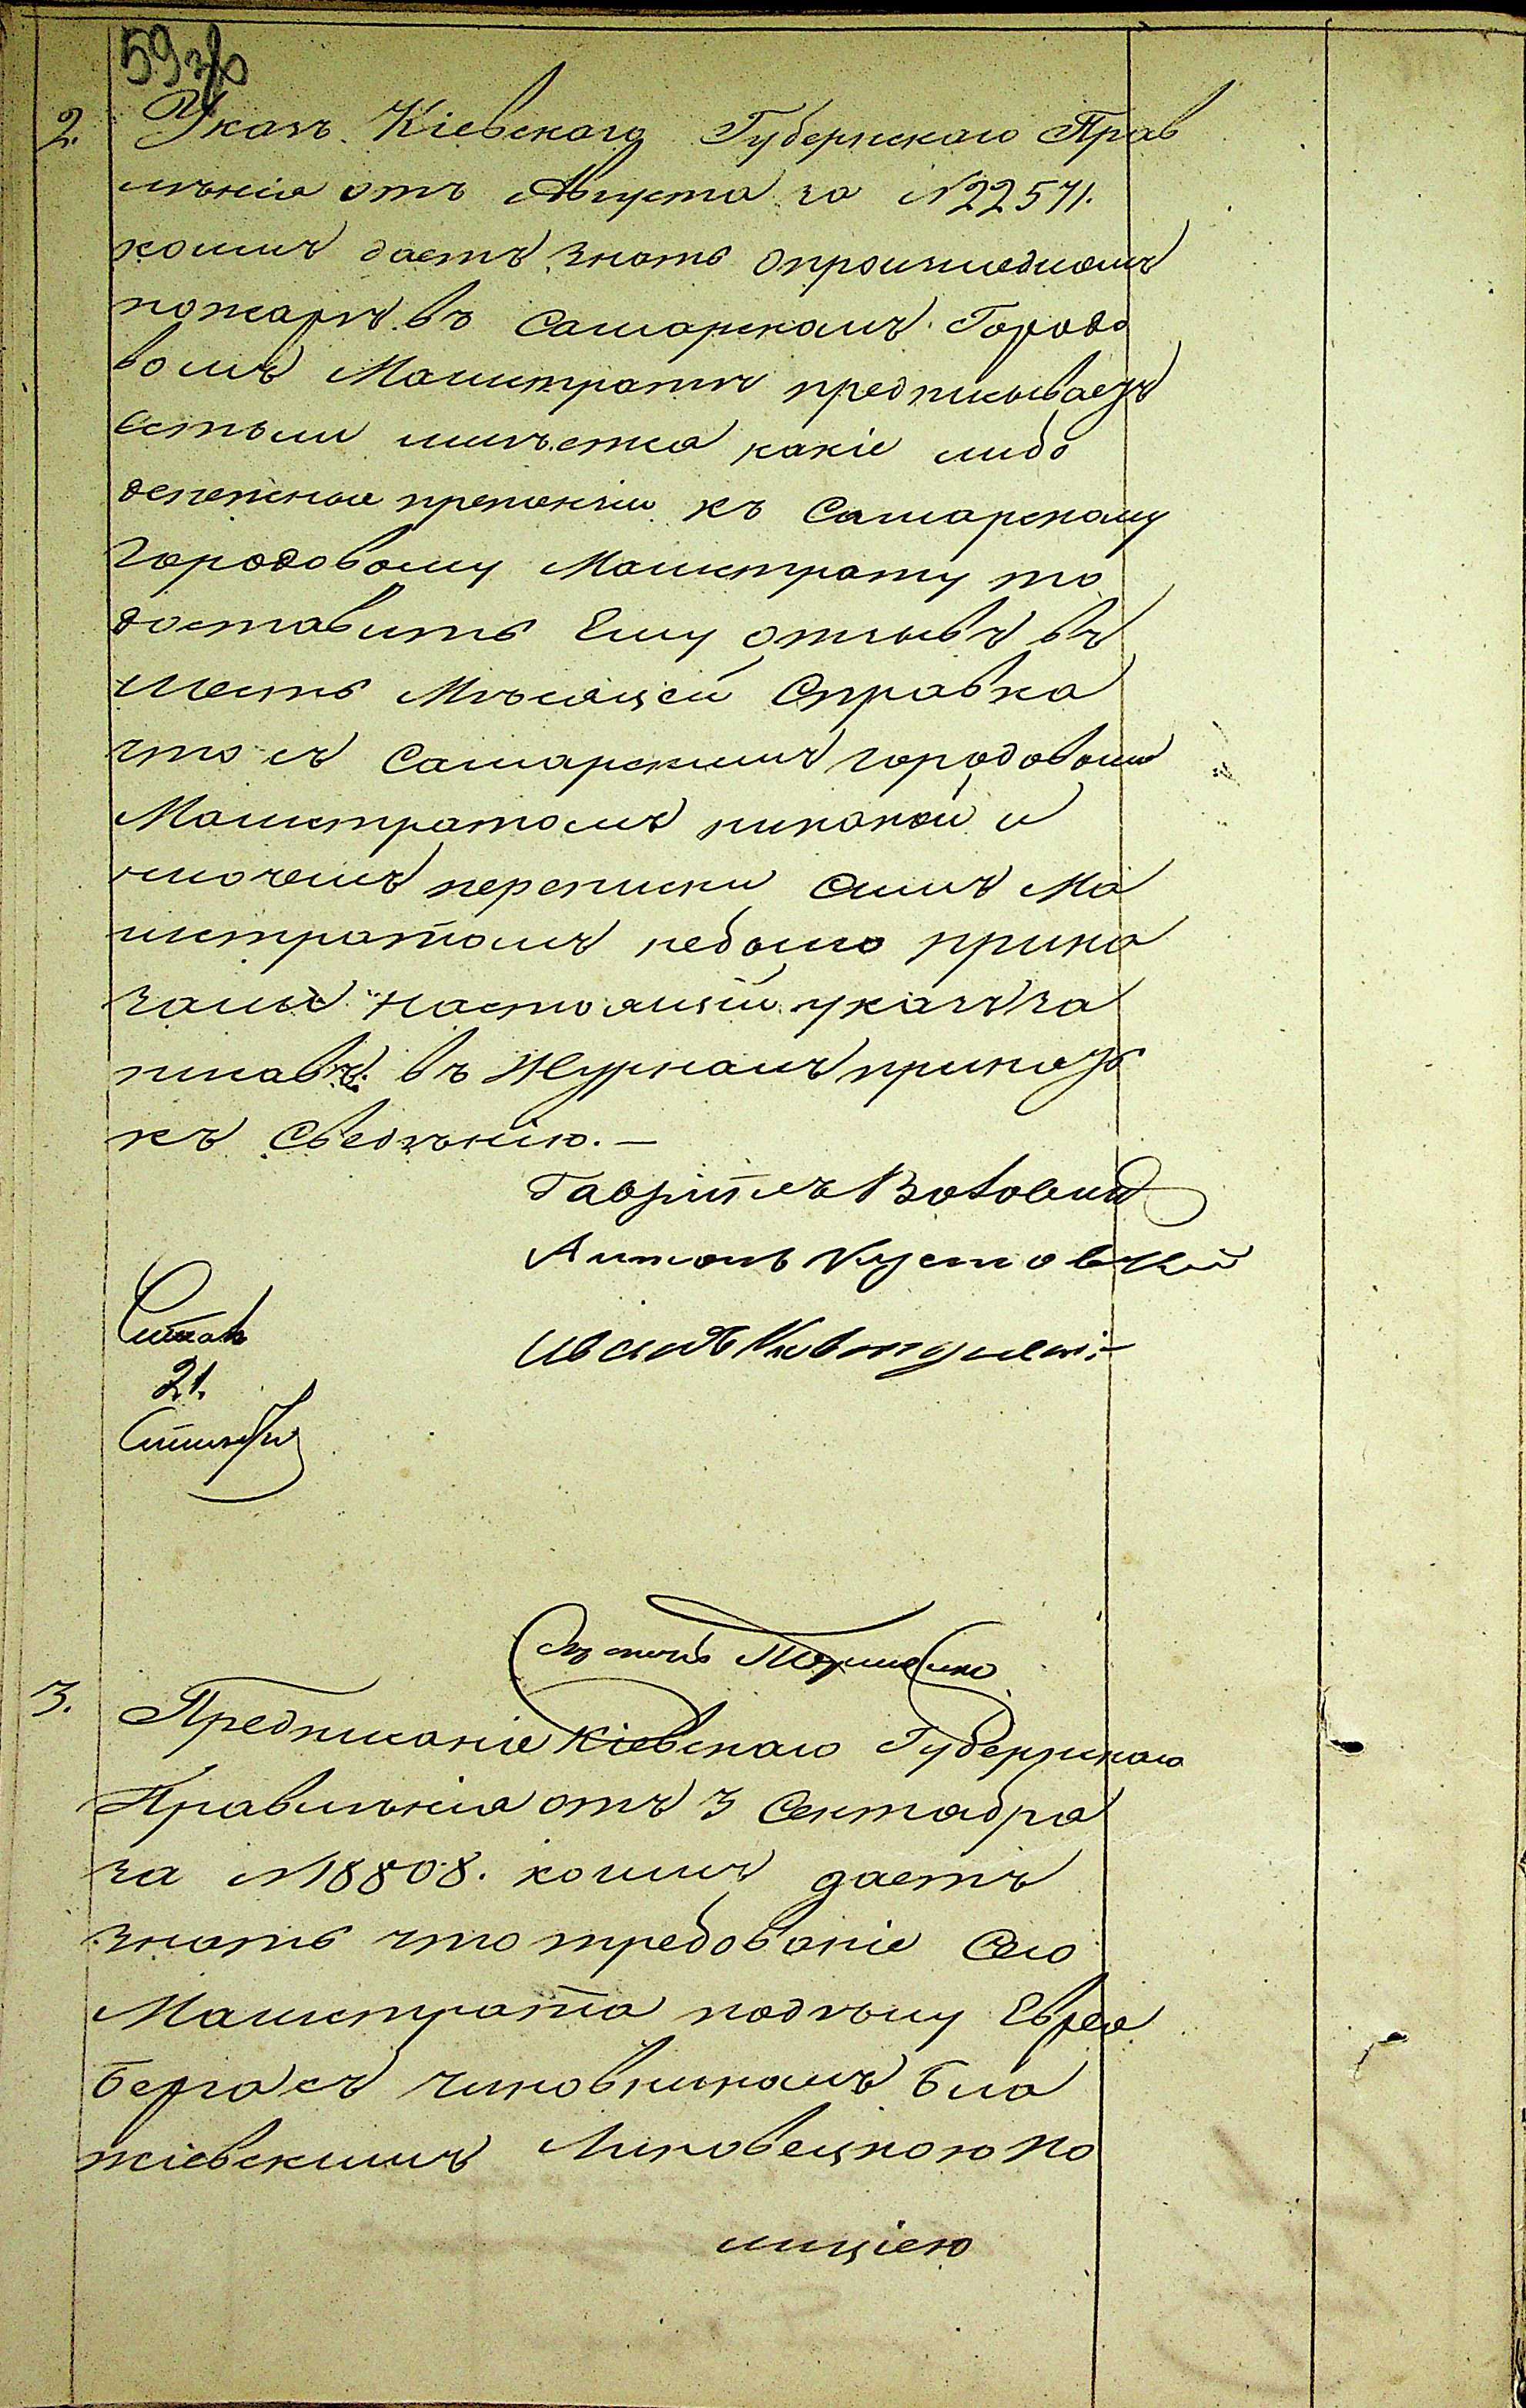 59 зв
2. Указъ Кіевскаго Губернскаго Прав
лѣнія отъ Августа за №22571.
коимъ даетъ знать опроизшедшемъ
пожарѣ въ Самарскомъ Городо
вомъ Магистратѣ предписываетъ
естьли имѣетъ какіе либо
денежные претензіи къ Самарскому
Городовому Магистрату то
доставить Ему отзывъ въ
шесть Мѣсяцей Справка
что съ Самарскимъ городовым
Магистратомъ никакой и
очемъ переписки симъ Ма
гистратомъ небыло прика
зали настоящій указъ за
писавъ въ Журналъ принять
къ Сведѣнію.—
Гавріилъ
Антонъ Кустовскій
Иванъ
Читалъ
21.
3. Предписаніе Кіевскаго Губернскаго
Правленія отъ 3 Сентября
за №18808. коимъ даетъ
знать что требованіе Сего
Магистрата подѣлу Еврея
Берга съ чиновникомъ Бла
жіевскимъ Липовецкою По
лиціею